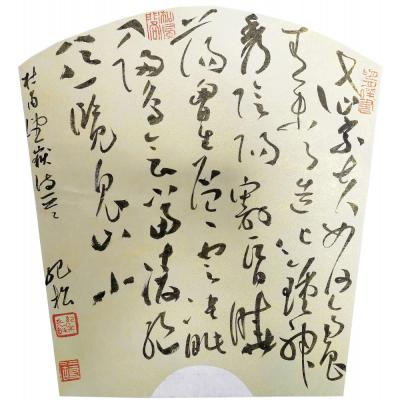 岱宗夫如何齊魯
青未了造化鍾神
秀陰陽割昏曉
蕩胸生層雲決眦
入歸鳥會當凌絕
頂一覽眾山小
杜甫望嶽詩 紀松